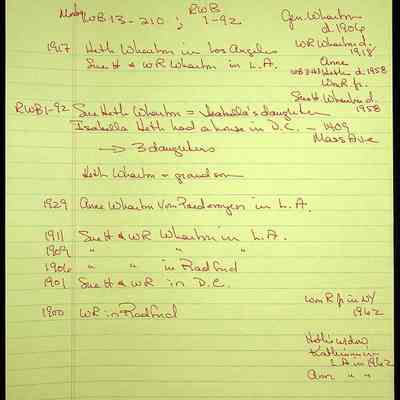 WB 13-210 ; RWB 1-92
Gen. Wharton d. 1906
WR Wharton d. 1918
Anne
Heth d. 1958
Wm R. jr.
Sue H. Wharton d. 1958
1917 Heth Wharton in Los Angeles
Sue H & WR Wharton in L.A.
RWB 1-92 Sue Heth Wharton = Isabella's daughter
Isabella Heth had a house in D.C. - 1409 Mass Ave
→ 3 daughters
Heth Wharton = grandson
1929 Anne Wharton Von in L.A.
1911 Sue H & WR Wharton in L.A.
1909 " " "
1906 " " in Radford
1901 Sue H & WR in D.C.
1900 WR in Radford
Wm R jr in NY 1962
Heth's widow,
L.A. in 1962
Ann " "